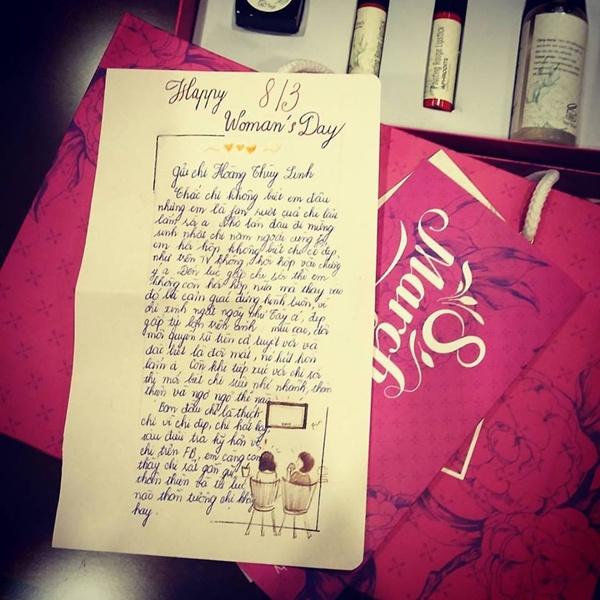 Happy 8/3
Woman's Day
gửi chị Hoàng Thùy Linh
Chắc chị không biết em đâu
nhưng em là fan ruột của chị lâu
lắm rồi ạ. Nhớ lần đầu đi mừng
sinh nhật chị năm ngoái cùng
em hồi hộp không biết chị có đẹp
như trên TV không
ý ạ. Đến lúc gặp chị rồi thì em
không còn hồi hộp nữa mà thay vào
đó là cảm giác đứng hình luôn, vì
chị xinh ngất ngây như Tây á, đẹp
gấp tỷ lần trên ảnh mũi cao, đôi
môi quyến rũ trên cả tuyệt vời và
đặc biệt là đôi mắt, nó hút hồn
lắm ạ. Còn khi tiếp xúc với chị rồi
thì mới biết chị siêu nhí nhảnh, thân
thiện và ngố ngố thế nào
Ban đầu chỉ là thích
chị vì chị đẹp, chị hát hay
sau điều tra kỹ hơn về
chị trên FB, em càng
thấy chị rất gần gũi
thân thiện và từ lúc
nào thần tượng chị không
hay.
8 March
Peeling Rouge Lipstick